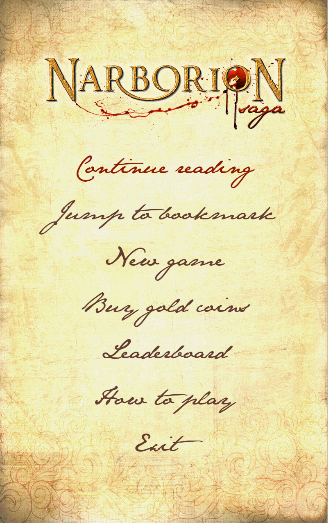 NARBORION
saga
Continue reading
Jump to bookmark
New game
Buy gold coins
Leaderboard
How to play
Exit